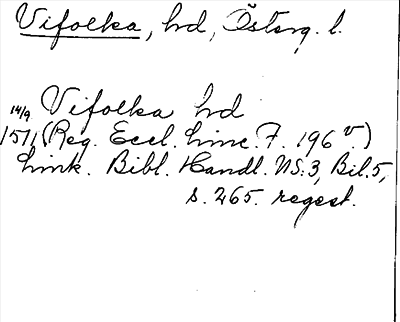 Vifolka, hd, Österg. l.
14/9 Vifolka hd
1511 (Reg. Eccl. Linc. F. 196 v.)
Link. Bibl. Handl. NS. 3, Bil. 5,
s. 265. regest.